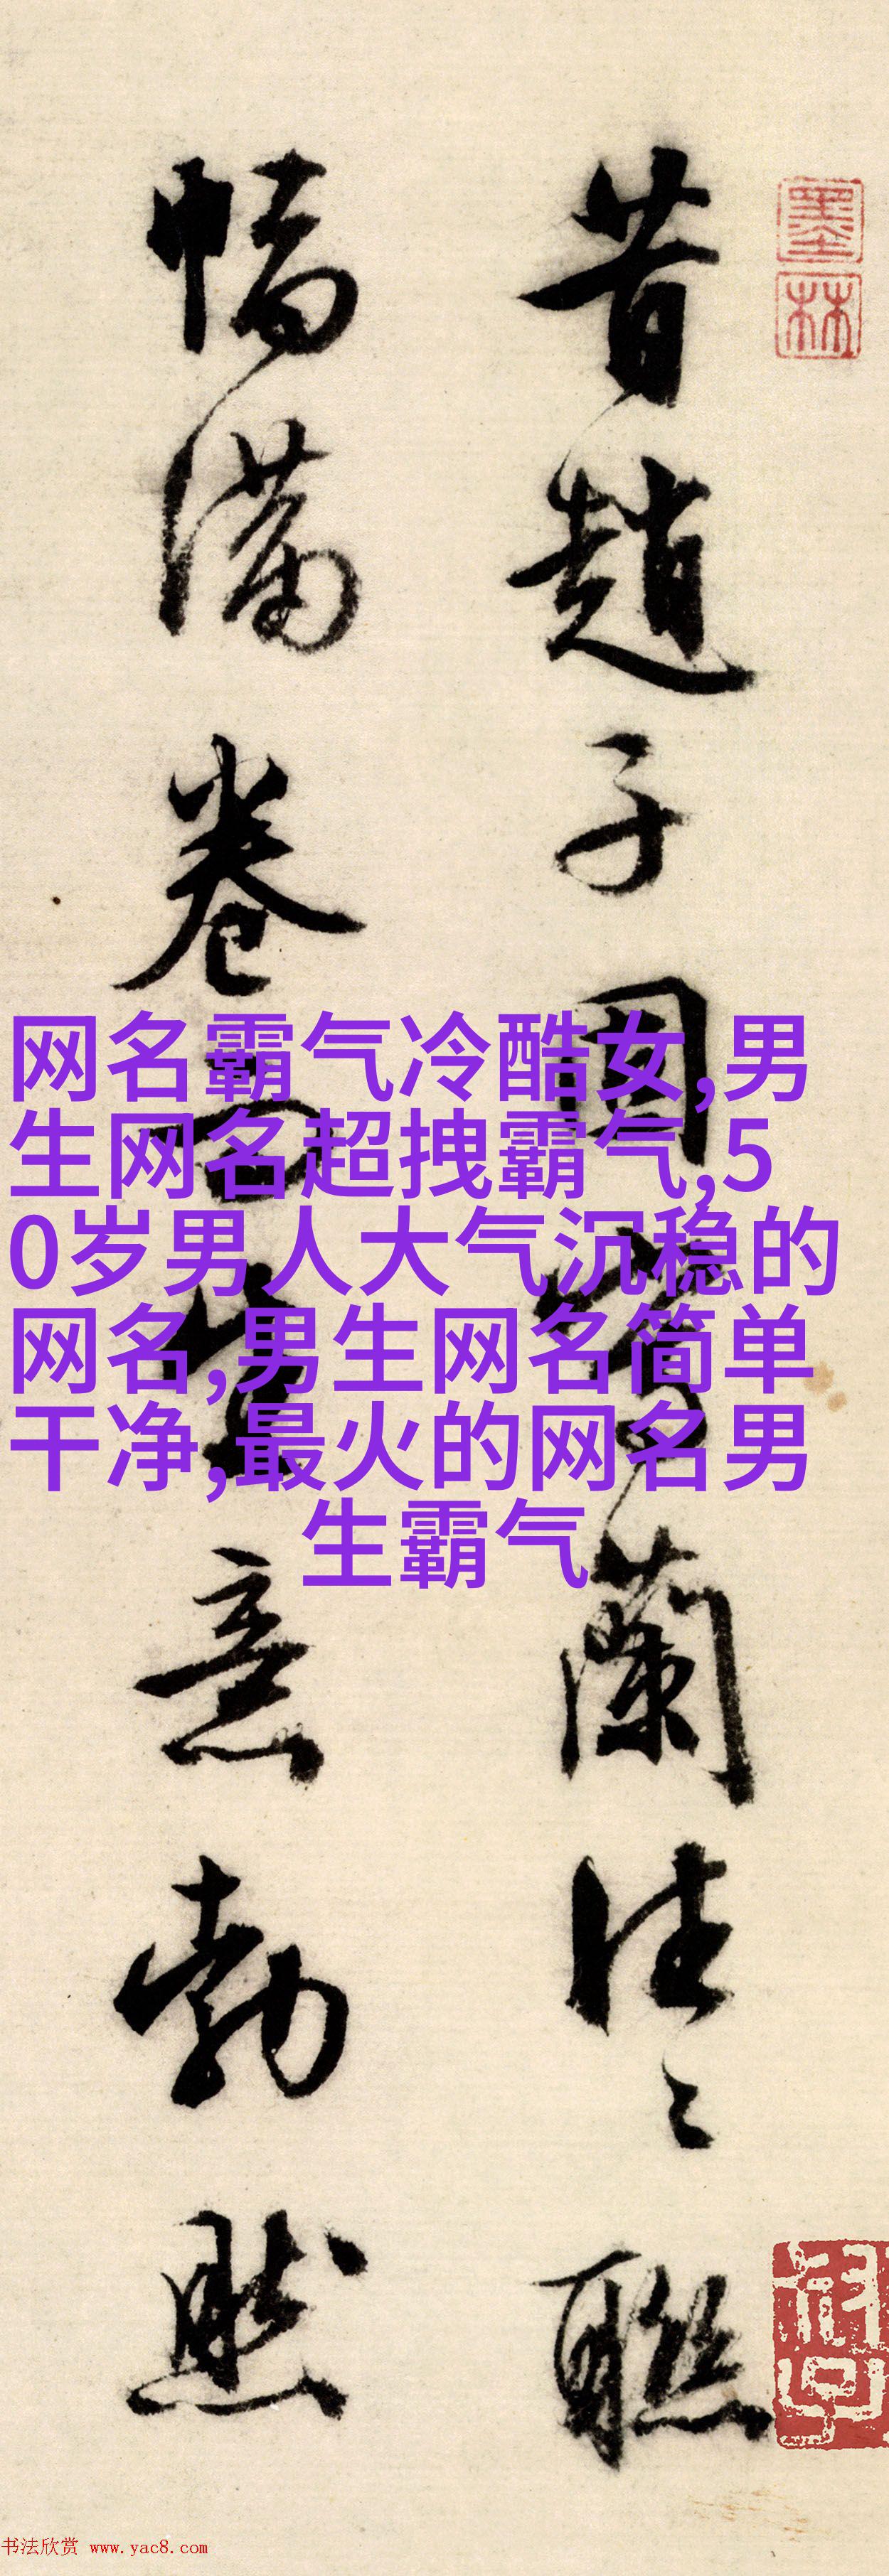 昔趙子固寫蘭往〻聯
幅滿卷而生意勃然
墨林
网名霸气冷酷女,男
生网名超拽霸气,5
0岁男人大气沉稳的
网名,男生网名简单
干净,最火的网名男
生霸气
书法欣赏 www.yac8.com